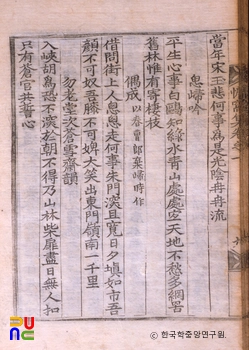 當年宋玉悲何事爲是光陰冉冉流
思歸吟
平生心事白鷗知綠水青山處處宜天地不愁多網罟
舊林惟有寄棲枝
偶成 以春曹郎棄歸時作
借問街上人悤悤走何事朱門深且寬日夕塡如市吾
顔不可奴吾膝不可婢大笑出東門嶺南一千里
勿老堂次蒼雪齋韻
入峽胡爲恐不深松朝不得乃山林柴扉盡日無人扣
只有蒼官共誓心
ⓒ한국학중앙연구원